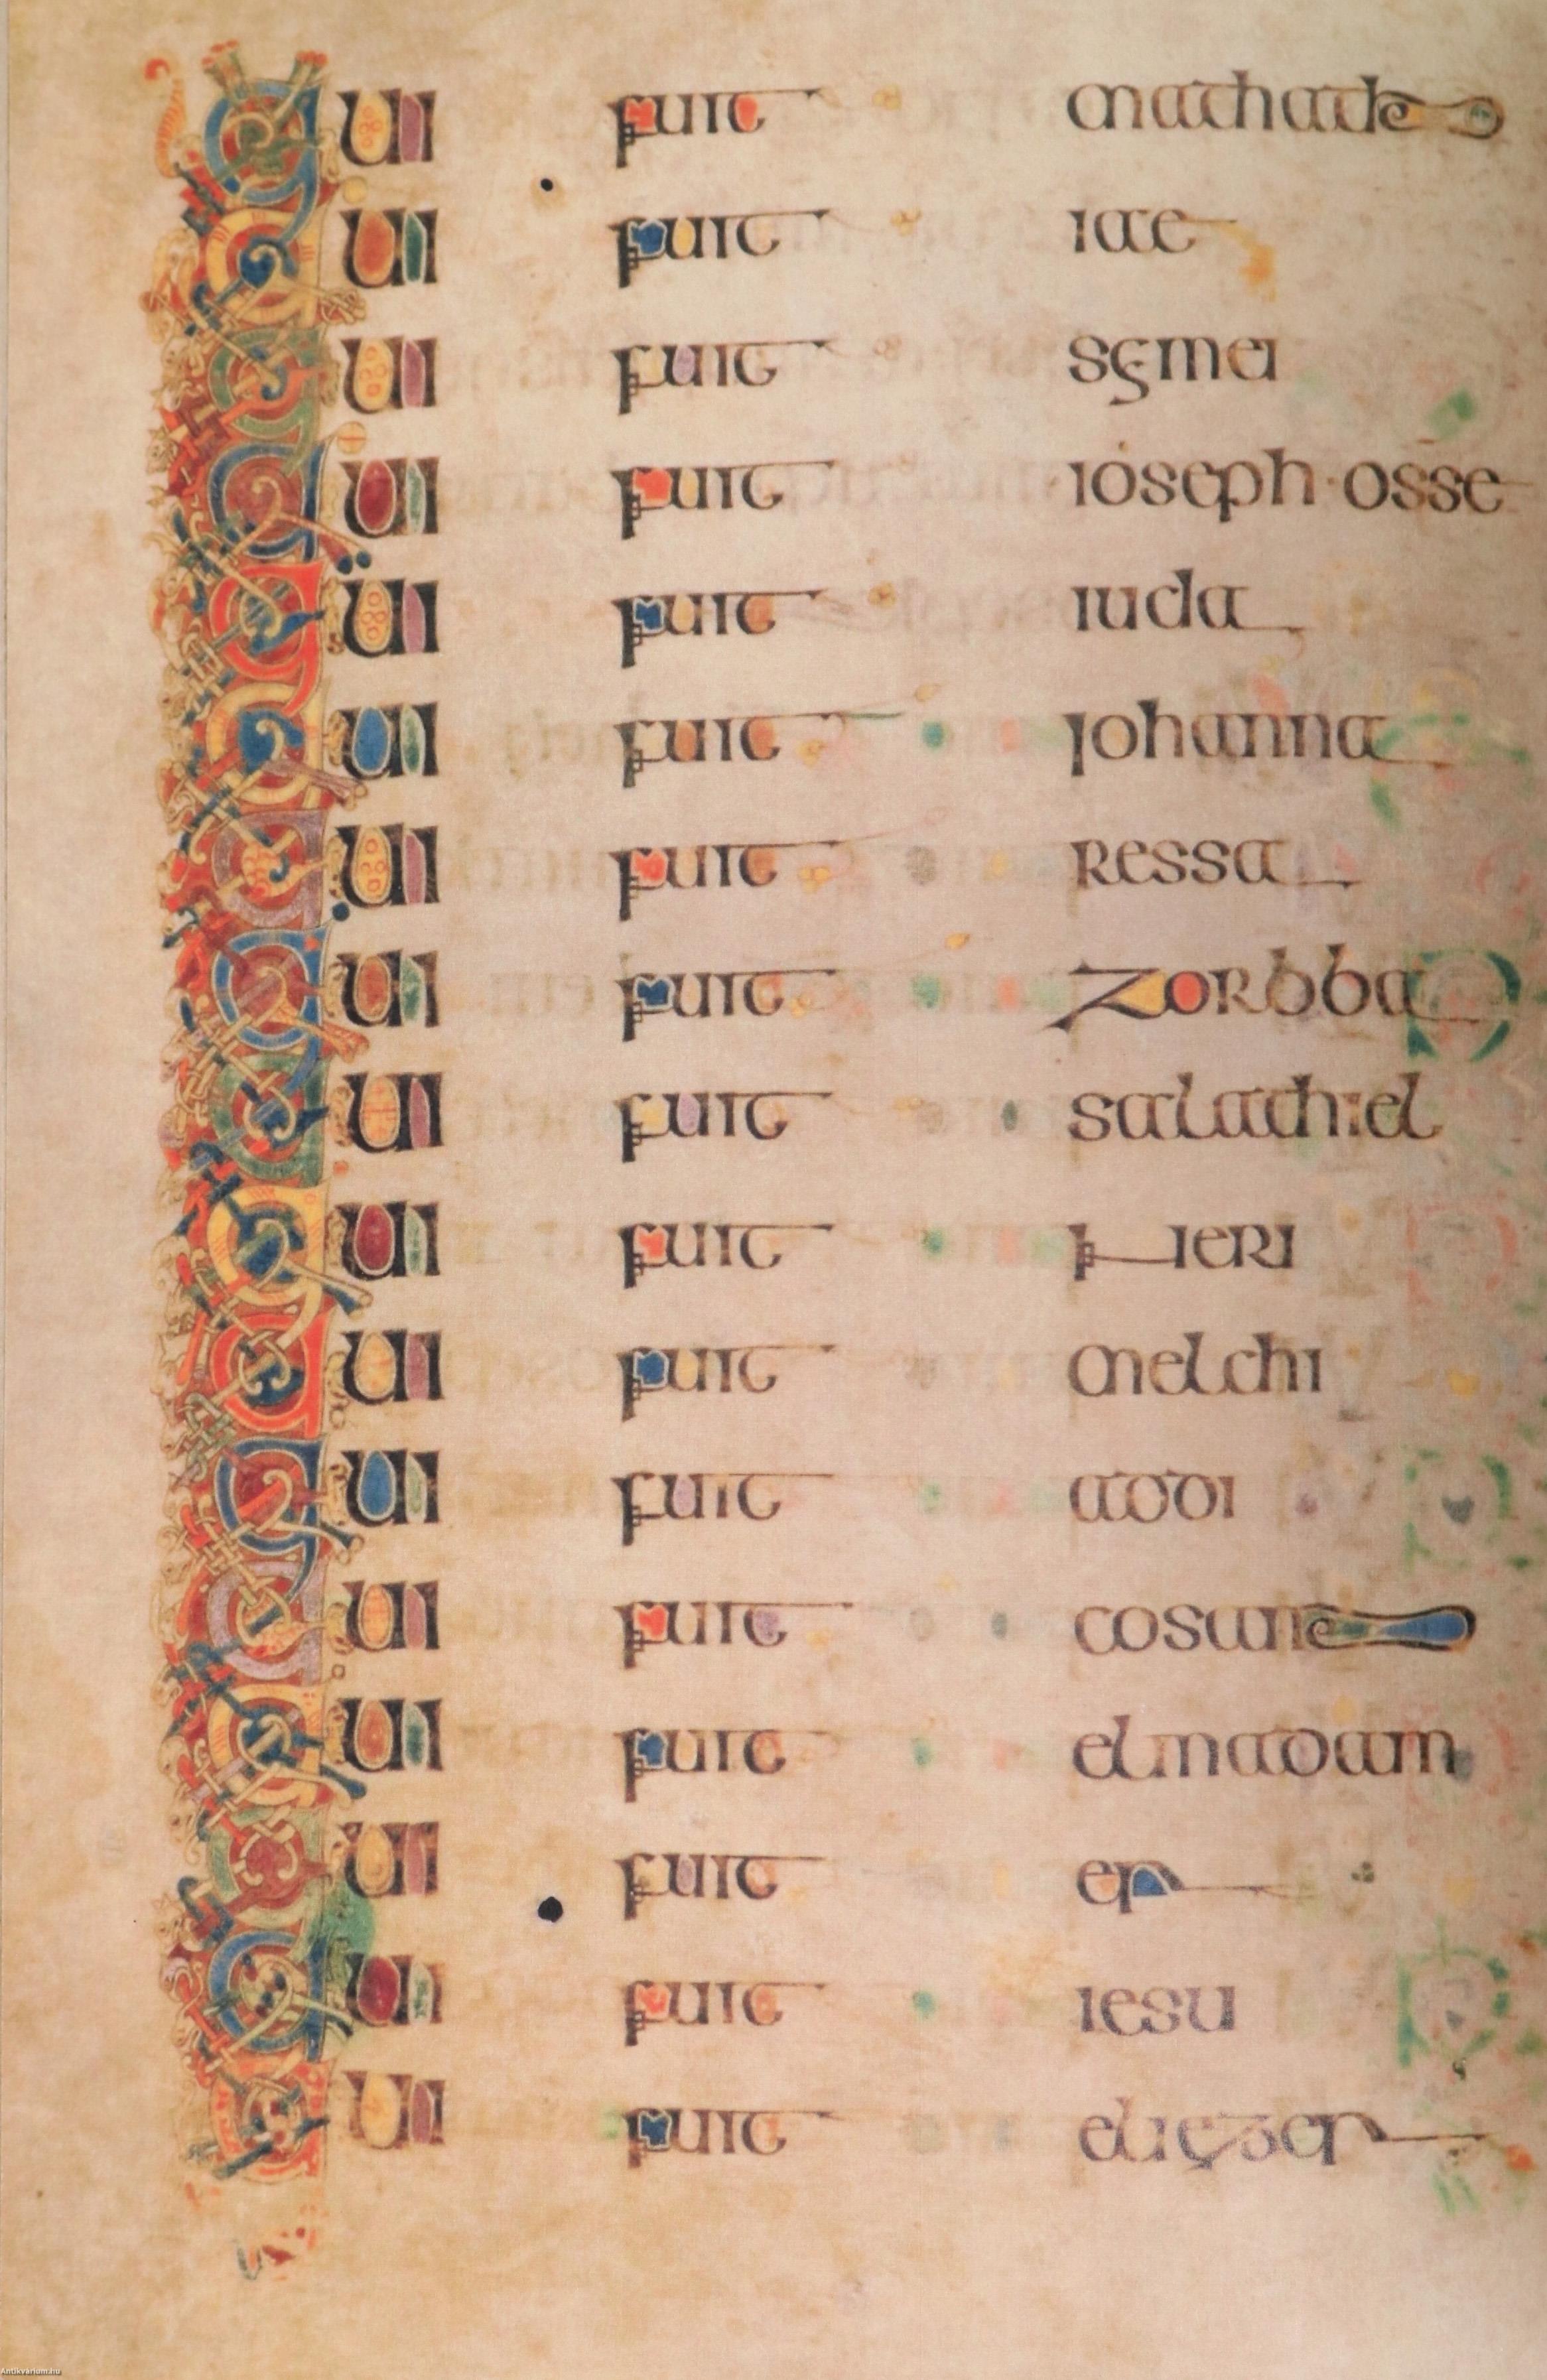 Qui fuit mathath
Qui fuit iae
Qui fuit sęmei
Qui fuit ioseph · osse
Qui fuit iuda
Qui fuit iohanna
Qui fuit ressa
Qui fuit zorbba
Qui fuit salathiel
Qui fuit neri
Qui fuit melchi
Qui fuit addi
Qui fuit cosam
Qui fuit elmadam
Qui fuit er
Qui fuit iesu
Qui fuit elięzer
Antikvarium.hu